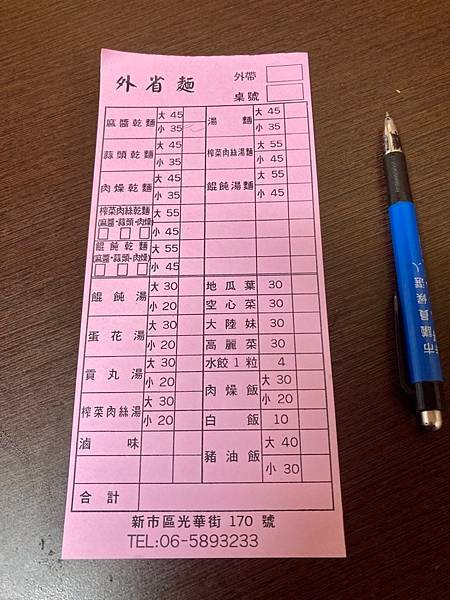 外省麵
外帶
桌號
麻醬乾麵 大 45 小 35
蒜頭乾麵 大 45 小 35
肉燥乾麵 大 45 小 35
榨菜肉絲乾麵 (麻醬·蒜頭·肉燥) 大 55 小 45
餛飩乾麵 (麻醬·蒜頭·肉燥) 大 55 小 45
湯麵 大 45 小 35
榨菜肉絲湯麵 大 55 小 45
餛飩湯麵 大 55 小 45
餛飩湯 大 30 小 20
蛋花湯 大 30 小 20
貢丸湯 大 30 小 20
榨菜肉絲湯 大 30 小 20
滷味
地瓜葉 30
空心菜 30
大陸妹 30
高麗菜 30
水餃1粒 4
肉燥飯 大 30 小 20
白飯 10
豬油飯 大 40 小 30
合計
新市區光華街 170 號
TEL:06-5893233
市議員候選人